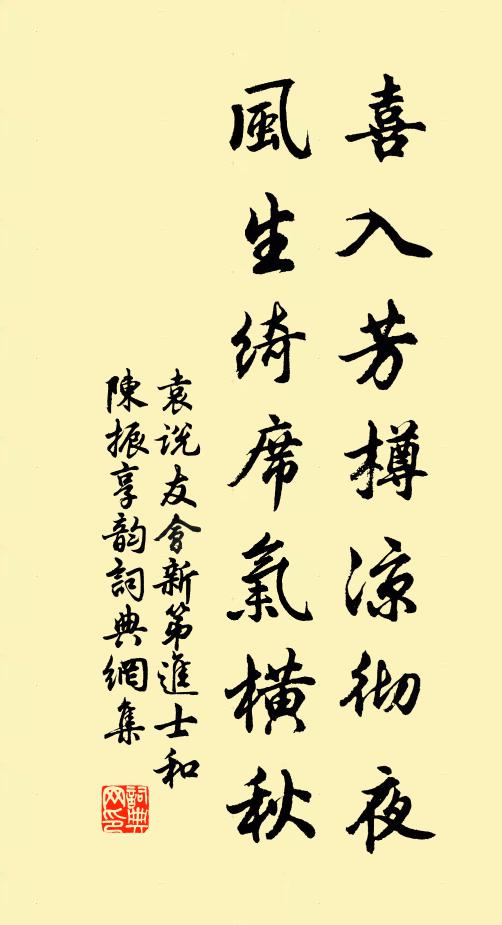 喜入芳樽涼彻夜
風生綺席氣橫秋
袁说友會新第進士和
陳振享韵詞典網集
詞典网印